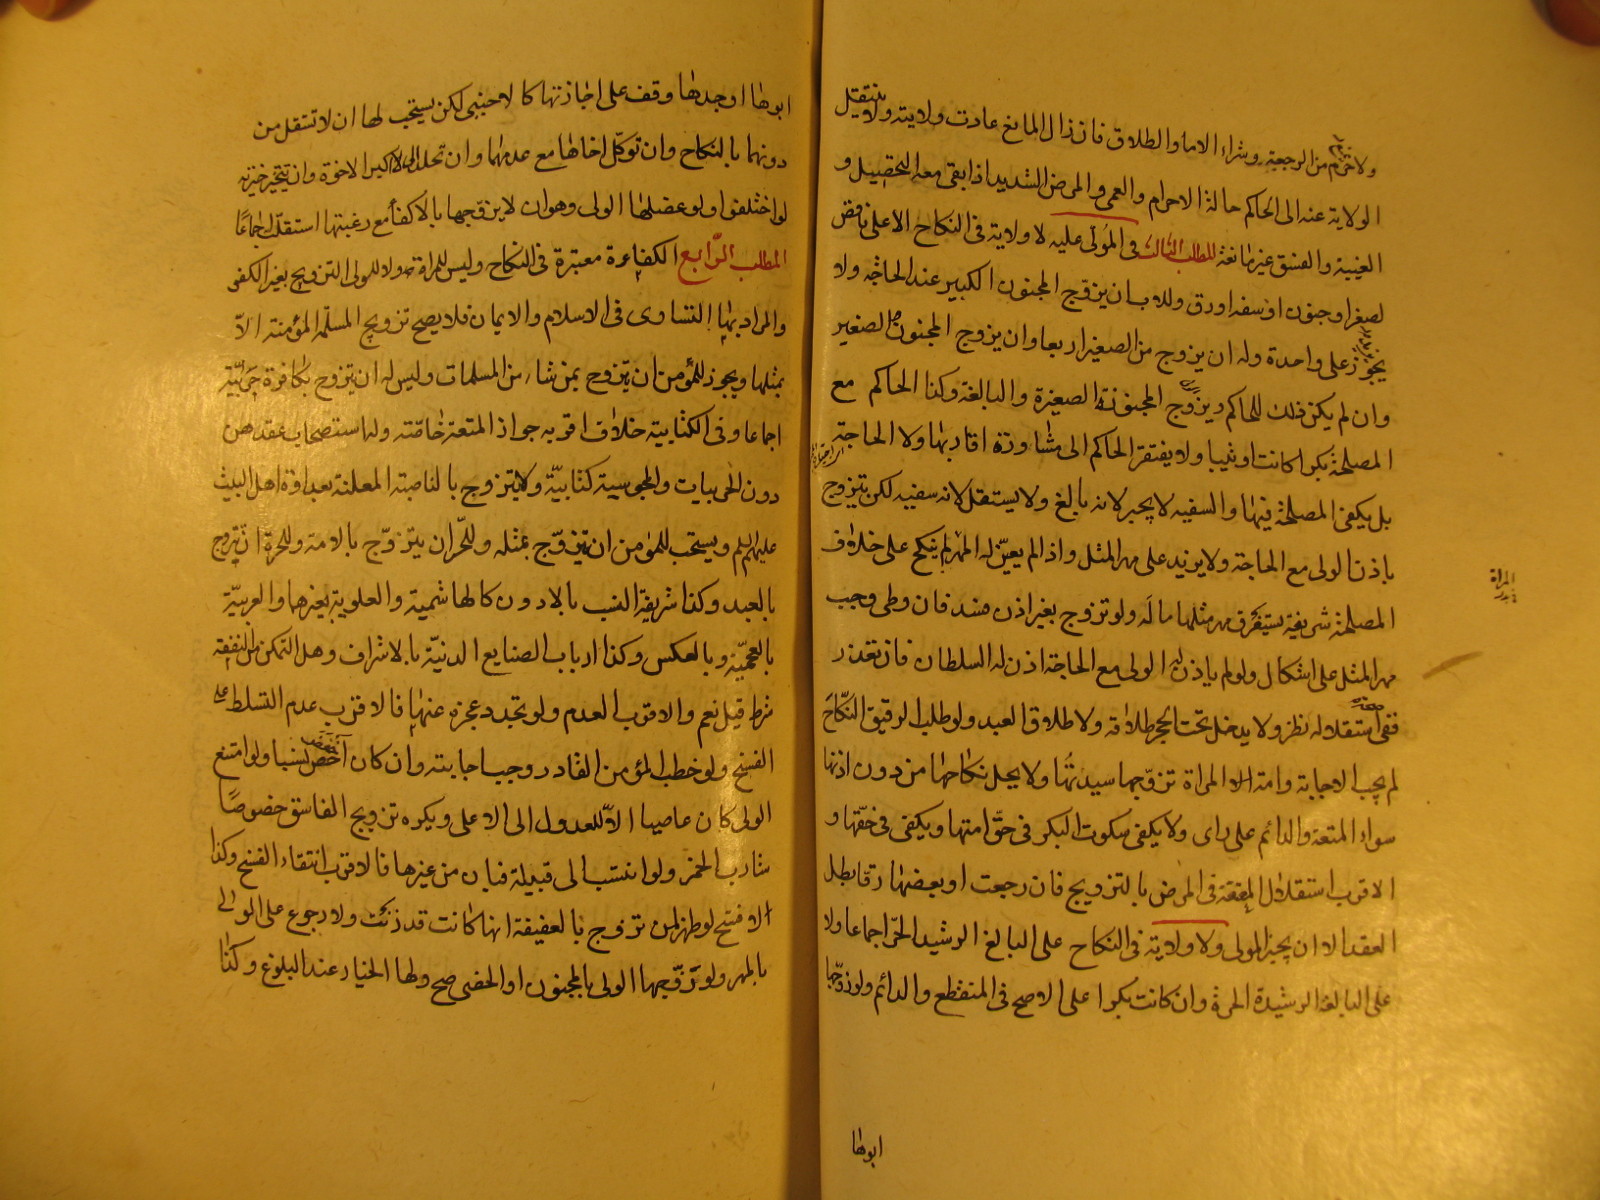 ولا تحرم من الرجعية وشراء الاماء والطلاق فان زال المانع عادت ولايته ولا ينتقل
الولاية عنه الى الحاكم حالة الاحرام والعمى والمرض الشديد اذا بقى معه التحصيل و
الغيبة والفسق غير مانعة المطلب الثالث فى المولى عليه لا ولاية فى النكاح الا على ناقص
لصغر او جنون او سفه او رق وللاب ان يزوج المجنون الكبير عند الحاجة ولا
يجوز على واحدة وله ان يزوج من الصغير اربعا وان يزوج المجنون الصغير
وان لم يكن ذلك للحاكم ويزوج المجنونة الصغيرة والبالغة وكذا الحاكم مع
المصلحة بكرا كانت او ثيبا ولا يفتقر الحاكم الى مشاورة اقاربها ولا الحاجة
بل يكفى المصلحة فيها والسفيه لا يجبر لانه بالغ ولا يستقل لانه سفيه لكن يتزوج
باذن الولى مع الحاجة ولا يزيد على مهر المثل واذا لم يعين له المهر لم ينكح على خلاف
المصلحة شريفة يستغرق مهر مثلها ماله ولو تزوج بغير اذن فسد فان وطى وجب
مهر المثل على اشكال ولو لم ياذن له الولى مع الحاجة اذن له السلطان فان تعذر
ففى استقلاله نظر ولا يدخل تحت الحجر طلاقه ولا طلاق العبد ولو طلب الرقيق النكاح
لم يجب الاجابة وامة المراة تزوجها سيدتها ولا يحل نكاحها من دون اذنها
سواء المتعة والدائم على راى ولا يكفى سكوت البكر فى حق امتها ويكفى فى حقها و
الاقرب استقلال المعتقة فى المرض بالتزويج فان رجعت او بعضها رقا بطل
العقد الا ان يجيز المولى ولا ولاية فى النكاح على البالغ الرشيد الحر اجماعا ولا
على البالغة الرشيدة الحرة وان كانت بكرا على الاصح فى المنقطع والدائم ولو زوجها
المراة
ابوها
ابوها او جدها وقف على اجازتها كالاجنبى لكن يستحب لها ان لا تستقل من
دونهما بالنكاح وان توكل اخاها مع عدمهما وان تخلد الى الاكبر الاخوة وان يتخير خيرته
لو اختلفوا ولو عضلها الولى وهو ان لا يزوجها بالاكفاء مع رغبتها استقلت اجماعا
المطلب الرابع الكفاءة معتبرة فى النكاح وليس للمراة ولا للولى التزويج بغير الكفى
والمراد بها التساوى فى الاسلام والايمان فلا يصح تزويج المسلمة المؤمنة الا
بمثلها ويجوز للمؤمن ان يتزوج بمن شاء من المسلمات وليس له ان يتزوج بكافرة حربية
اجماعا وفى الكتابية خلاف اقربه جواز المتعة خاصة وله استصحاب عقدهن
دون الحربيات والمجوسية كتابية ولا يتزوج بالناصبة المعلنة بعداوة اهل البيت
عليهم السلم ويستحب للمؤمن ان يتزوج بمثله وللحر ان يتزوج بالامة وللحرة ان تتزوج
بالعبد وكذا شريفة النسب بالادون كالهاشمية والعلوية بغيرهما والعربية
بالعجمية وبالعكس وكذا ارباب الصنايع الدنية بالاشراف وهل التمكن من النفقة
شرط قيل نعم والاقرب العدم ولو تجدد عجزه عنها فالاقرب عدم التسلط على
الفسخ ولو خطب المؤمن القادر وجب اجابته وان كان اخفض نسبا ولو امتنع
الولى كان عاصيا الا للعدول الى الاعلى ويكره تزويج الفاسق خصوصا
شارب الخمر ولو انتسب الى قبيلة فبان من غيرها فالاقرب انتقاء الفسخ وكذا
لا فسخ لو ظهر لمن تزوج بالعفيفة انها كانت قد زنت ولا رجوع على الولى
بالمهر ولو زوجها الولى بالمجنون او الخصى صح ولها الخيار عند البلوغ وكذا